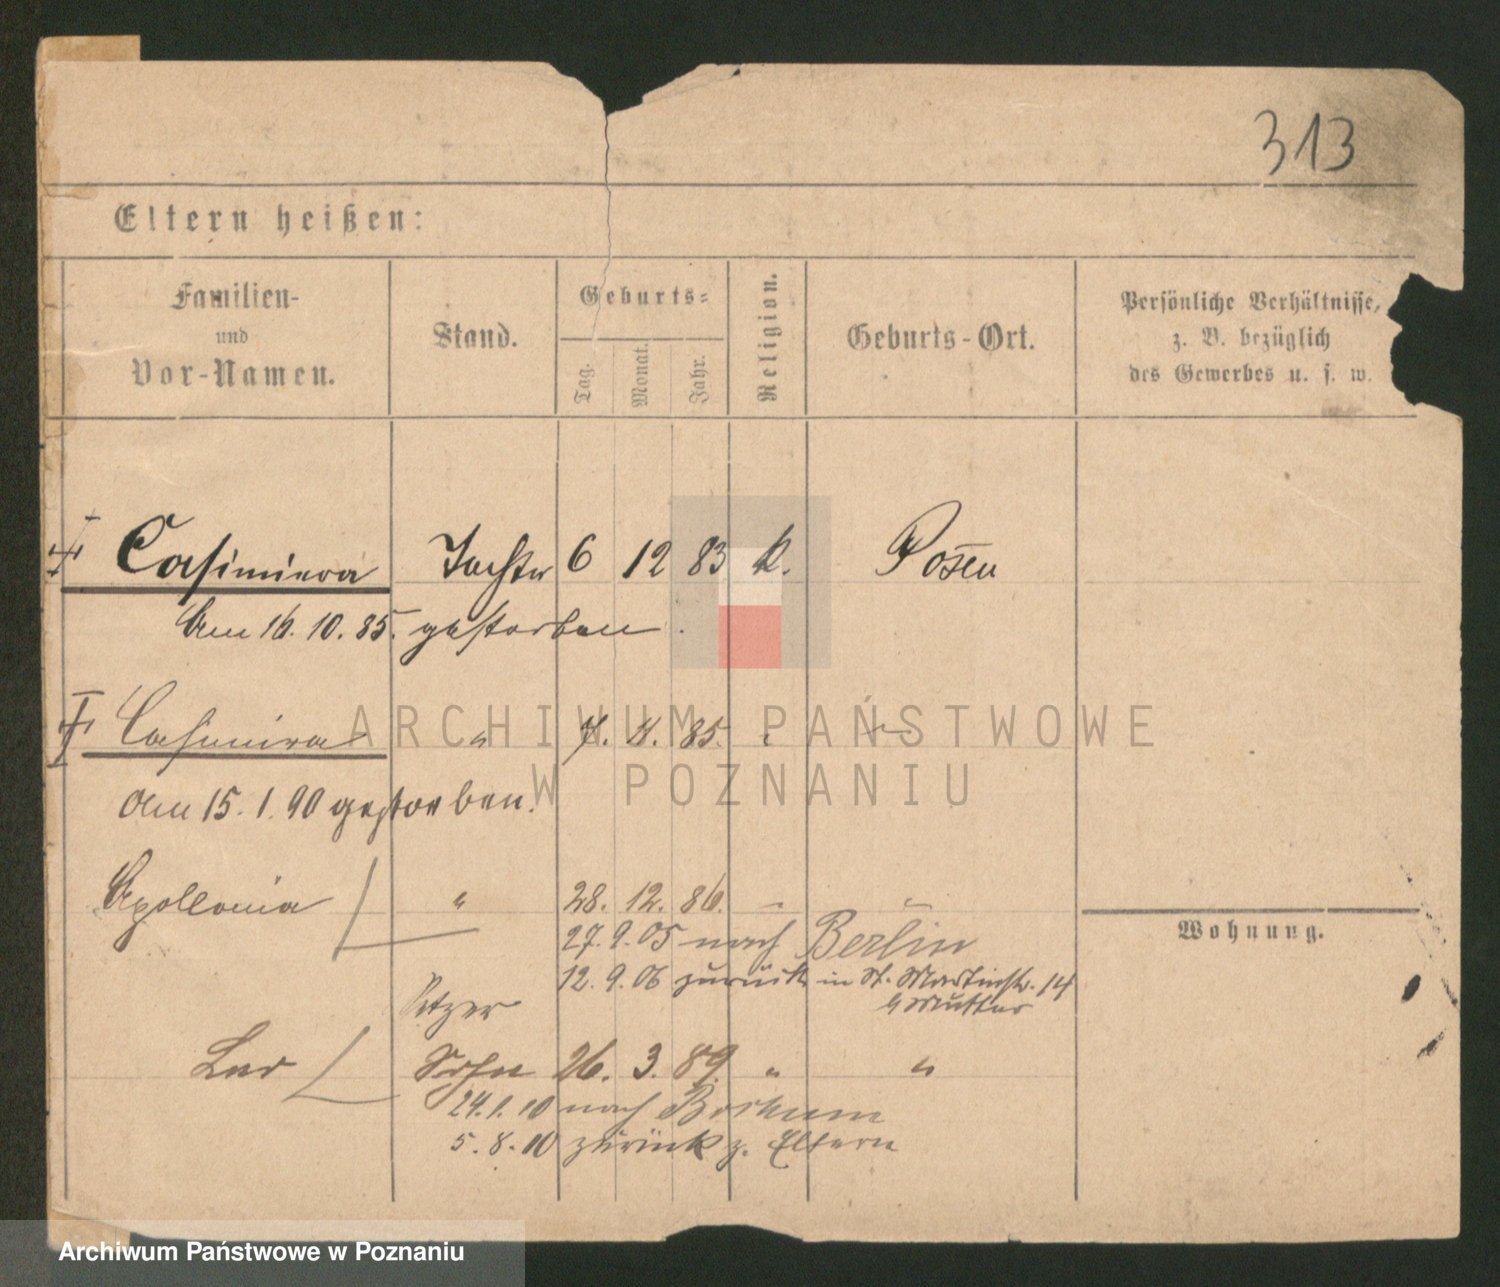 313
Eltern heißen:
Familien-
und
Vor-Namen.
Stand.
Geburts-
Tag.
Monat.
Jahr.
Religion.
Geburts-Ort.
Persönliche Verhältnisse,
z. B. bezüglich
des Gewerbes u. s. w.
Casimiera Tochter 6 12 83 k. Posen
Am 16. 10. 85. gestorben.
Casimira " 7. 85. "
Am 15. 1. 90 gestorben.
Apollonia " 28. 12. 86. " "
27. 9. 05 nach Berlin
12. 9. 06 zurück in St. Martinstr. 14
Mutter
Wohnung.
Setzer
Leo Sohn 26. 3. 89. " "
24. 1. 10 nach Bochum
5. 8. 10 zurück z. Eltern
ARCHIWUM PAŃSTWOWE
W POZNANIU
Archiwum Państwowe w Poznaniu